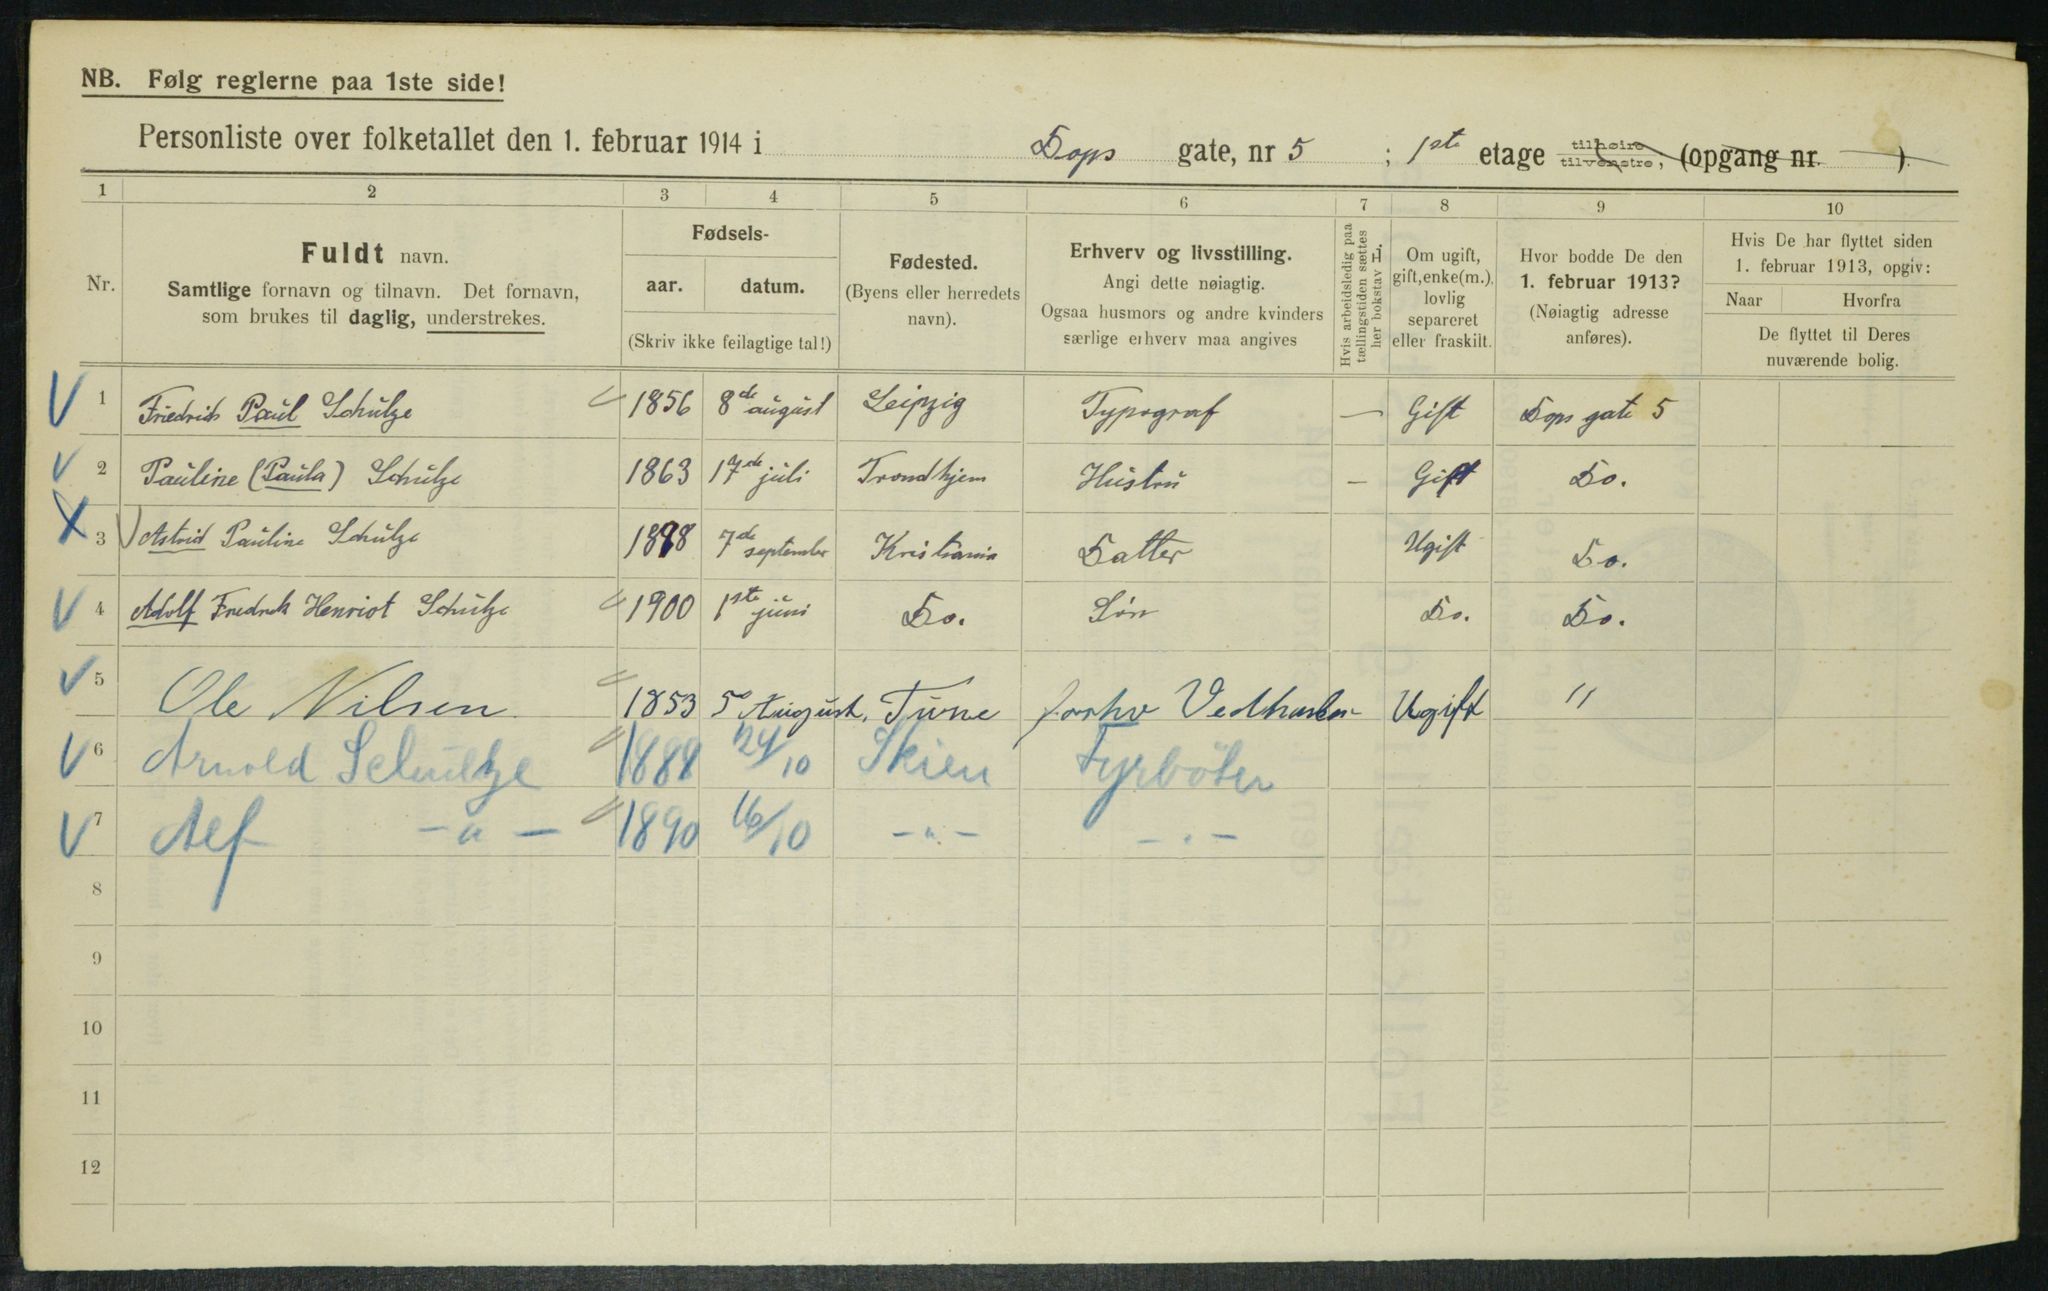 NB. Følg reglerne paa 1ste side!
Personliste over folketallet den 1. februar 1914 i Dops gate, nr 5 ; 1ste etage tilhøire tilvenstre, (opgang nr. ).
1 2 3 4 5 6 7 8 9 10
Nr.
Fuldt navn.
Samtlige fornavn og tilnavn. Det fornavn,
som brukes til daglig, understrekes.
Fødsels-
aar. datum.
(Skriv ikke feilagtige tal!)
Fødested.
(Byens eller herredets
navn).
Erhverv og livsstilling.
Angi dette nøiagtig.
Ogsaa husmors og andre kvinders
særlige erhverv maa angives
Hvis arbeidsledig paa
tællingstiden sættes
her bokstav L.
Om ugift,
gift, enke(m.),
lovlig
separeret
eller fraskilt.
Hvor bodde De den
1. februar 1913?
(Nøiagtig adresse
anføres).
Hvis De har flyttet siden
1. februar 1913, opgiv:
Naar Hvorfra
De flyttet til Deres
nuværende bolig.
1 Friedrich Paul Schulze 1856 8de august Leipzig Typograf — Gift Dops gate 5
2 Pauline (Paula) Schulze 1863 17de juli Trondhjem Hustru — Gift Do.
3 Astrid Pauline Schulze 1898 7de september Kristiania Datter Ugift Do.
4 Adolf Fredrik Henriot Schulze 1900 1ste juni Do. Søn Do. Do.
5 Ole Nilsen 1853 5 August, Tune forhv Ugift "
6 Arnold Schultze 1888 24/10 Skien Fyrbøter
7 Alf — " — 1890 16/10 — " — — " —
8
9
10
11
12